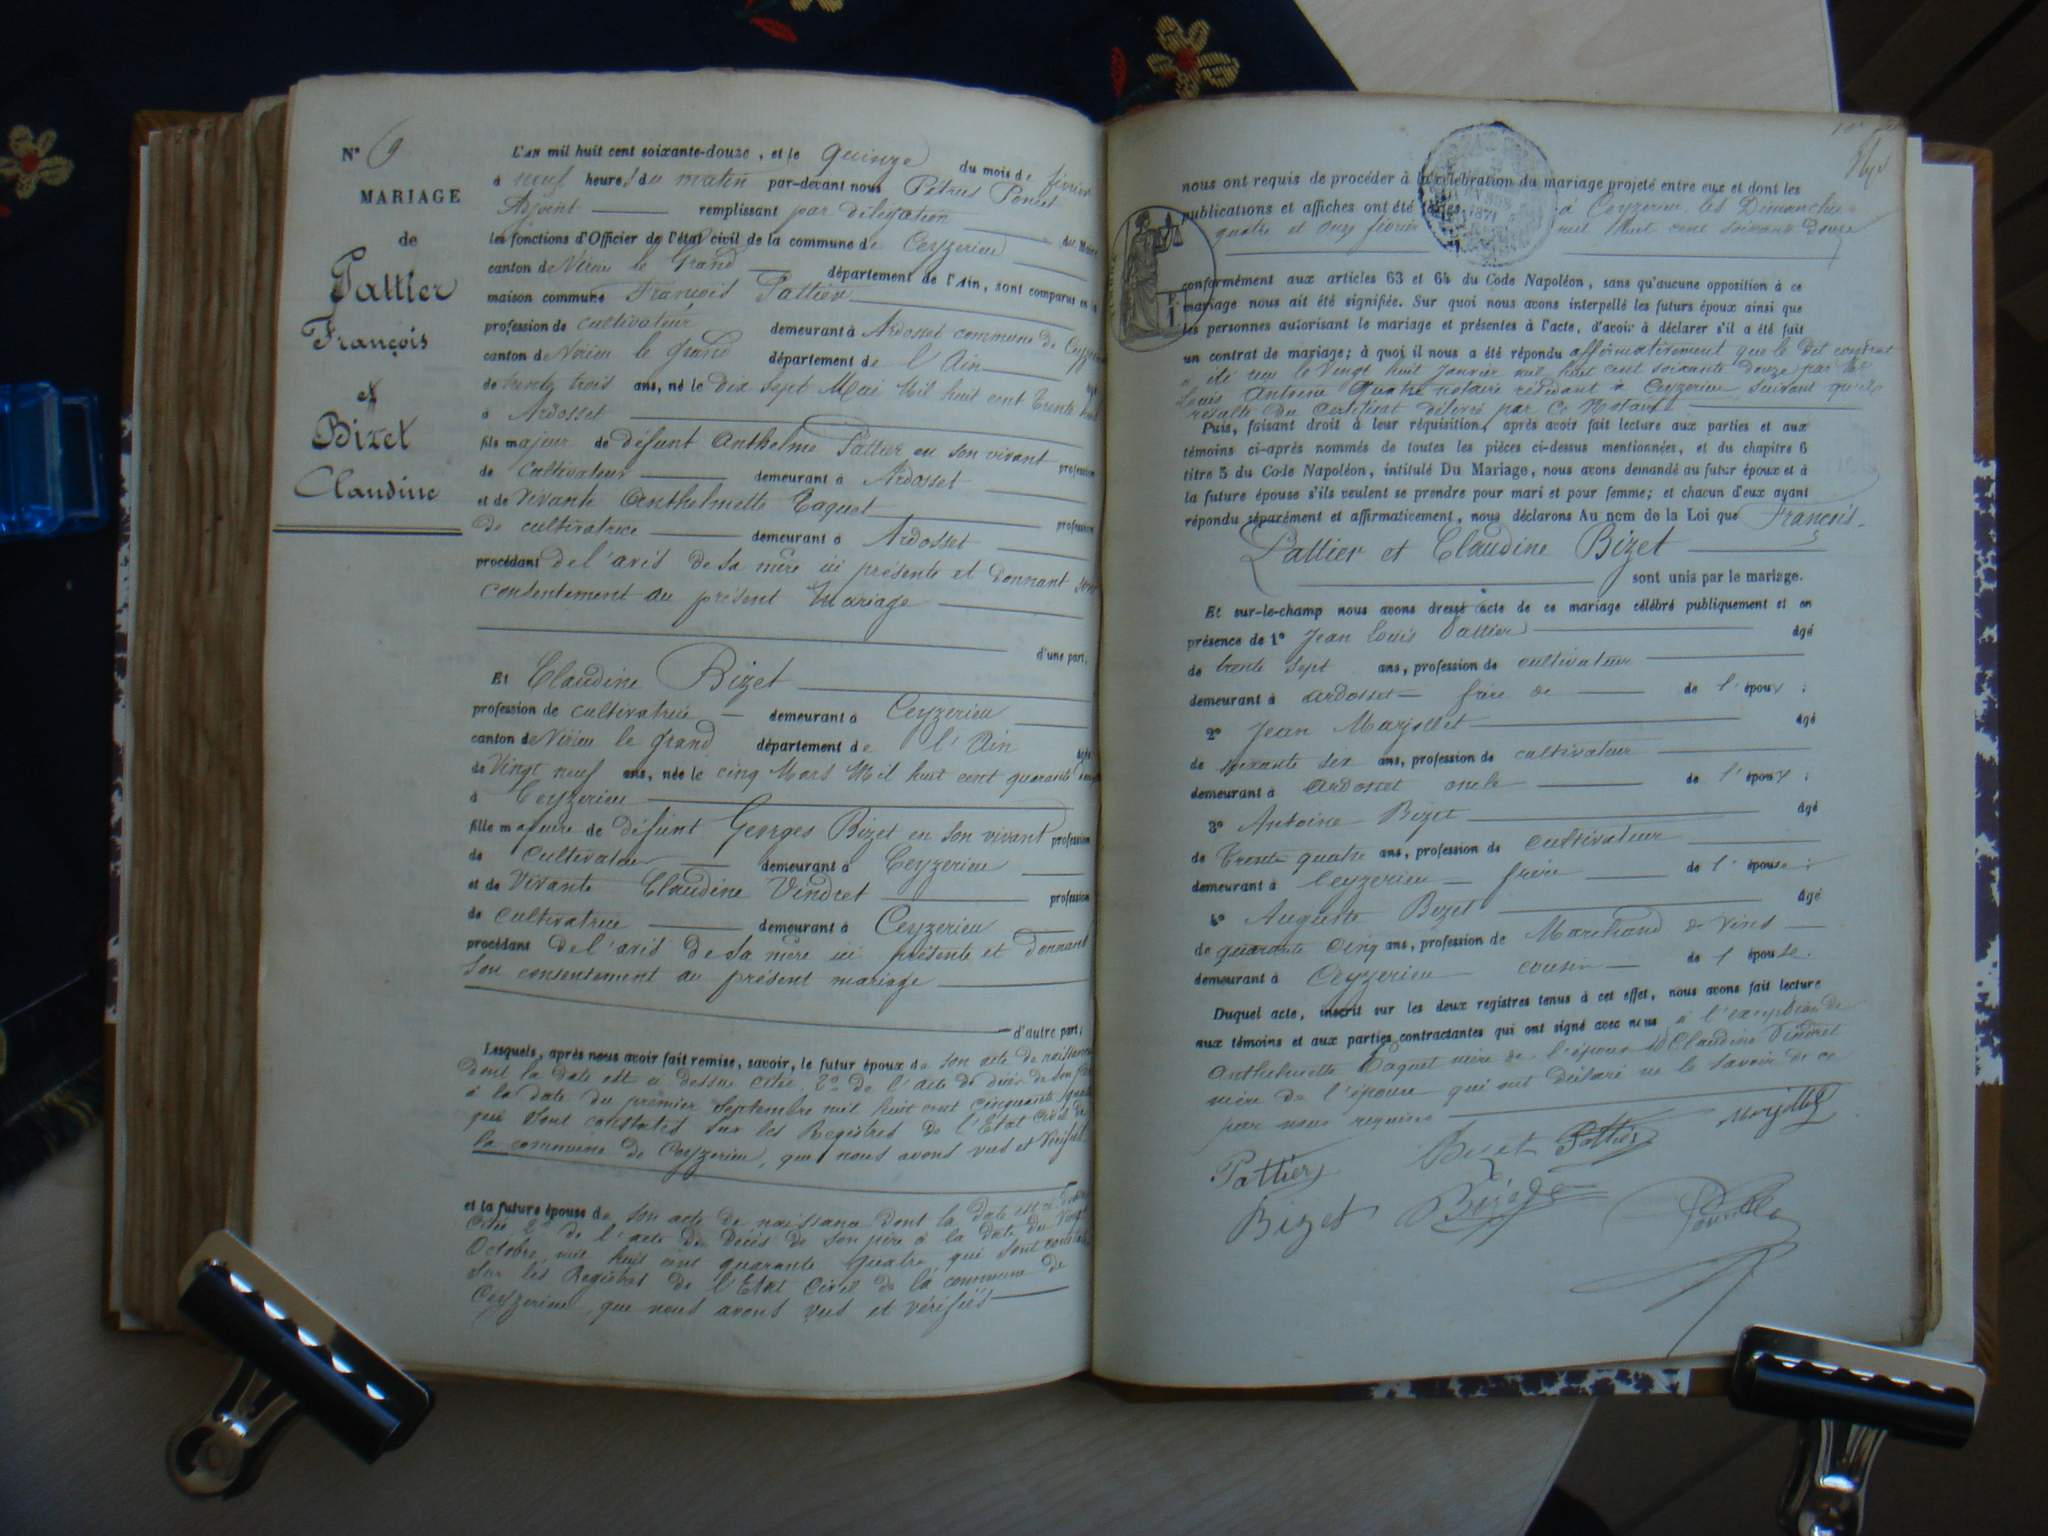 N° 9
MARIAGE
de
Pattier
François
et
Bizet
Claudine
L'AN mil huit cent soixante-douze, et le quinze du mois de février
à neuf heures du matin par-devant nous Pétrus Poncet
Adjoint remplissant par délégation du Maire
les fonctions d'Officier de l'état civil de la commune de Ceyzerieu
canton de Virieu le Grand département de l'Ain, sont comparus en la
maison commune François Pattier
profession de cultivateur demeurant à Ardosset commune de Ceyzerieu
canton de Virieu le Grand département de l'Ain âgé
de trente trois ans, né le dix sept Mai Mil huit cent trente huit
à Ardosset
fils majeur de défunt Anthelme Pattier en son vivant profession
de cultivateur demeurant à Ardosset
et de vivante Anthelmette Taquet profession
de cultivatrice demeurant à Ardosset
procédant de l'avis de sa mère ici présente et donnant son
consentement au présent mariage
d'une part,
Et Claudine Bizet
profession de cultivatrice demeurant à Ceyzerieu
canton de Virieu le Grand département de l'Ain âgée
de Vingt neuf ans, née le cinq Mars Mil huit cent quarante
à Ceyzerieu
fille majeure de défunt Georges Bizet en son vivant profession
de cultivateur demeurant à Ceyzerieu
et de Vivante Claudine Vindret profession
de cultivatrice demeurant à Ceyzerieu
procédant de l'avis de sa mère ici présente et donnant
son consentement au présent mariage
d'autre part;
Lesquels, après nous avoir fait remise, savoir, le futur époux de son acte de naissance
dont la date est ci dessus citée 2° de l'acte de décès de son père
à la date du premier septembre mil huit cent cinquante quatre
qui sont constatés sur les Registres de l'Etat Civil de
la commune de Ceyzerieu, que nous avons vus et vérifiés
et la future épouse de son acte de naissance dont la date est ci dessus
citée 2° de l'acte de décès de son père à la date du Vingt
Octobre mil huit cent quarante quatre, qui sont constatés
sur les Registres de l'Etat Civil de la commune de
Ceyzerieu, que nous avons vus et vérifiés
nous ont requis de procéder à la célébration du mariage projeté entre eux et dont les
publications et affiches ont été faites à Ceyzerieu les Dimanches
quatre et onze février mil huit cent soixante douze
1871
conformément aux articles 63 et 64 du Code Napoléon, sans qu'aucune opposition à ce
mariage nous ait été signifiée. Sur quoi nous avons interpellé les futurs époux ainsi que
les personnes autorisant le mariage et présentes à l'acte, d'avoir à déclarer s'il a été fait
un contrat de mariage; à quoi il nous a été répondu affirmativement que le dit contrat
a été reçu le vingt huit janvier mil huit cent soixante douze par Me
Louis Antoine Quatre notaire résidant à Ceyzerieu suivant qu'il
résulte du certificat délivré par ce Notaire
Puis, faisant droit à leur réquisition, après avoir fait lecture aux parties et aux
témoins ci-après nommés de toutes les pièces ci-dessus mentionnées, et du chapitre 6
titre 5 du Code Napoléon, intitulé Du Mariage, nous avons demandé au futur époux et à
la future épouse s'ils veulent se prendre pour mari et pour femme; et chacun d'eux ayant
répondu séparément et affirmativement, nous déclarons Au nom de la Loi que François
Pattier et Claudine Bizet
sont unis par le mariage.
Et sur-le-champ nous avons dressé acte de ce mariage célébré publiquement et en
présence de 1° Jean Louis Pattier âgé
de trente sept ans, profession de cultivateur
demeurant à Ardosset frère de de l'époux;
2° Jean Marjollet âgé
de soixante six ans, profession de cultivateur
demeurant à Ardosset oncle de l'époux;
3° Antoine Bizet âgé
de Trente quatre ans, profession de cultivateur
demeurant à Ceyzerieu frère de l'épouse;
4° Auguste Bizet âgé
de quarante cinq ans, profession de Marchand de Vins
demeurant à Ceyzerieu cousin de l'épouse.
Duquel acte, inscrit sur les deux registres tenus à cet effet, nous avons fait lecture
aux témoins et aux parties contractantes qui ont signé avec nous à l'exception de
Anthelmette Taquet mère de l'époux et Claudine Vindret
mère de l'épouse qui ont déclaré ne le savoir de ce
par nous requises
Pattier Bizet Pattier Marjollet
Bizet